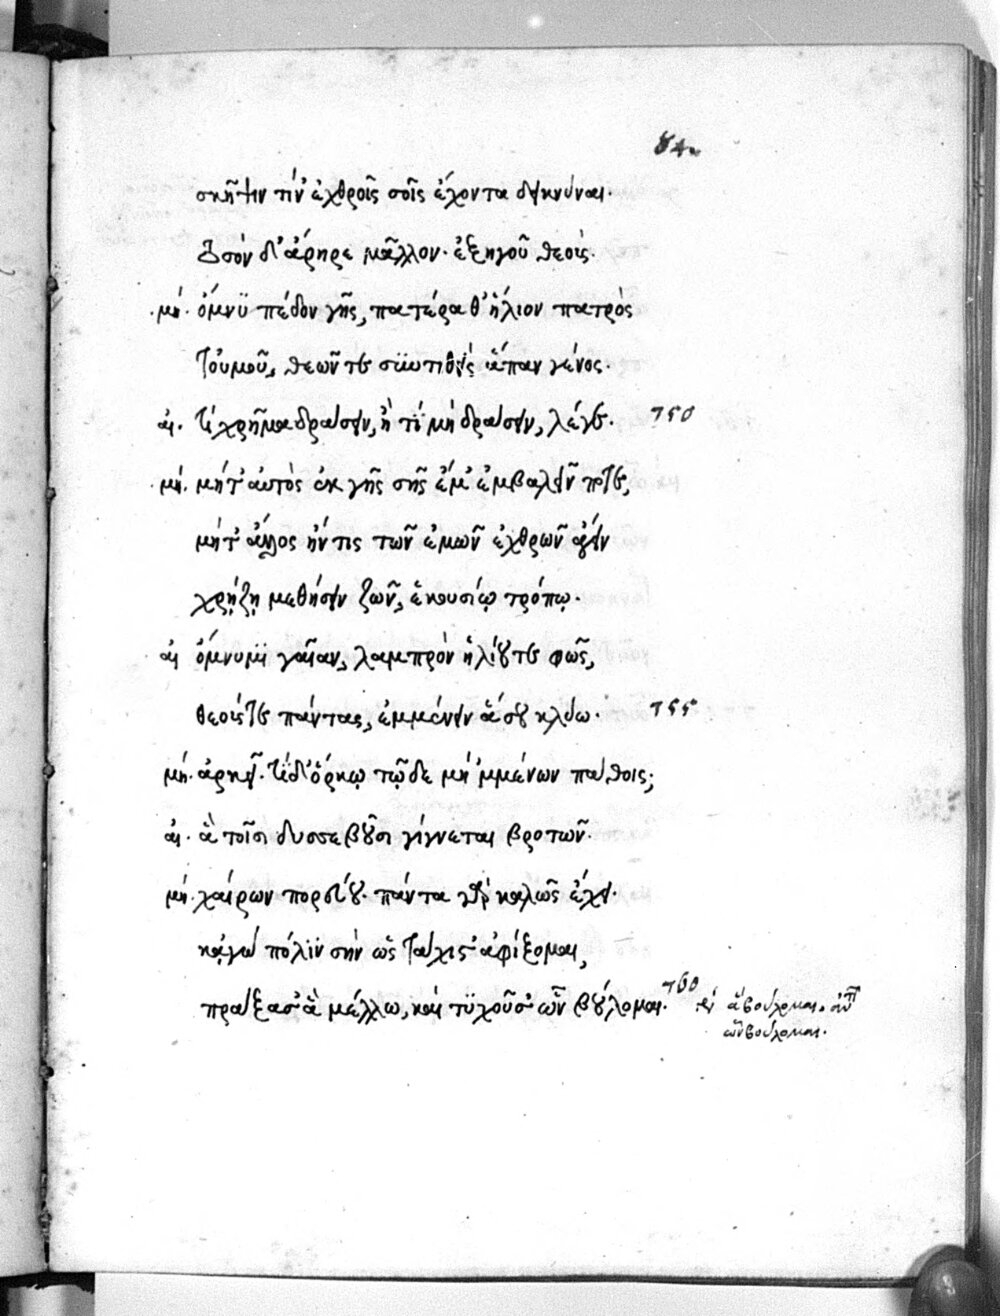 84.
σκῆψιν τίν' ἐχθροῖς σοῖς ἔχοντα δεικνύναι.
τὸ σόν δ' ἄρηρε μᾶλλον. ἐξηγοῦ θεοίς.
μή. ὄμνυ πέδον γῆς, πατέρα θ' ἥλιον πατρὸς
τοὐμοῦ, θεῶν τε συντιθεὶς ἅπαν γένος.
αἰ. τί χρῆμα δράσειν, ἢ τί μὴ δράσειν, λέγε. 750
μή. μήτ' αὐτὸς ἐκ γῆς σῆς ἔμ' ἐμβαλεῖν ποτε,
μήτ' ἄλλος ἤν τις τῶν ἐμῶν ἐχθρῶν ἄγειν
χρῄζῃ μεθήσειν ζῶν, ἑκουσίῳ τρόπῳ.
αἰ ὄμνυμι γαῖαν, λαμπρὸν ἡλίου τε φῶς,
θεούς τε πάντας, ἐμμένειν ἅ σου κλύω. 755
μή. ἀρκεῖ. τί δ' ὅρκῳ τῷδε μὴ 'μμένων πάθοις;
αἰ. ἃ τοῖσι δυσσεβοῦσι γίγνεται βροτῶν.
μή. χαίρων πορεύου. πάντα γὰρ καλῶς ἔχει.
κᾀγὼ πόλιν σὴν ὡς τάχιστ' ἀφίξομαι,
πράξασ' ἃ μέλλω, καὶ τυχοῦσ' ὧν βούλομαι. 760
ἃ βούλομαι.
ὧν βούλομαι.